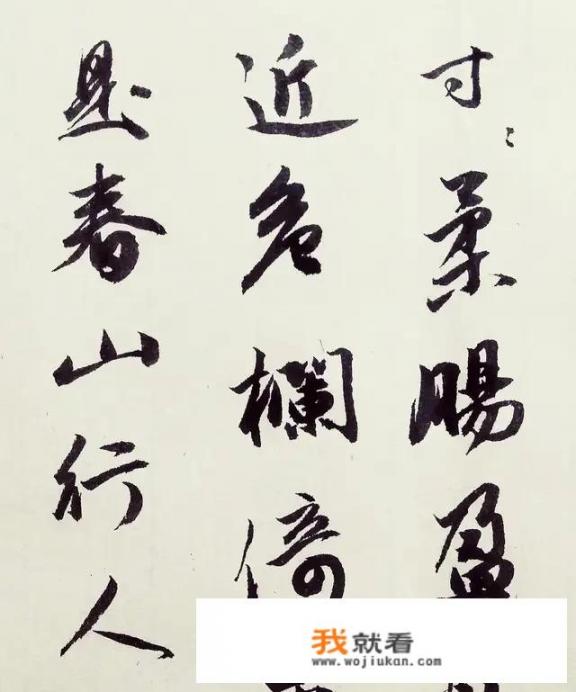 寸〻柔腸盈
近危欄倚
是春山行人
我就看
www.wojiukan.com